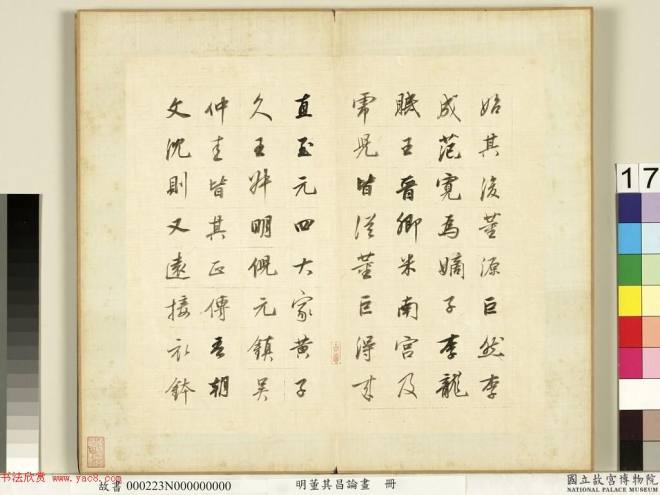 始其後董源巨然李
成范寬為嫡子李龍
眠王晉卿米南宮及
虎兒皆從董巨得來
直至元四大家黃子
久王叔明倪元鎮吳
仲圭皆其正傳吾朝
文沈則又遠接衣鉢
17
书法欣赏 www.yac8.com
故書 000223N000000000
明董其昌論畫 冊
國立故宮博物院
NATIONAL PALACE MUSEUM